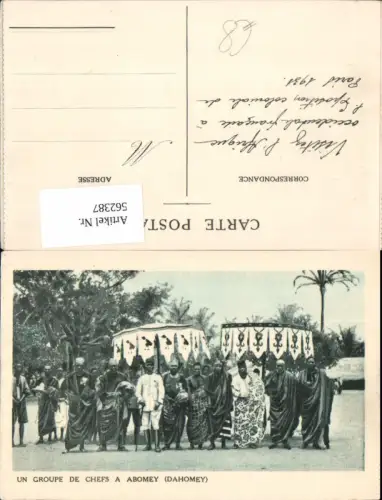 CARTE POSTA
CORRESPONDANCE
ADRESSE
Visitez l'Afrique
occidentale française à
l'Exposition coloniale de
Paris 1931.
M
Artikel Nr.
562387
UN GROUPE DE CHEFS A ABOMEY (DAHOMEY)